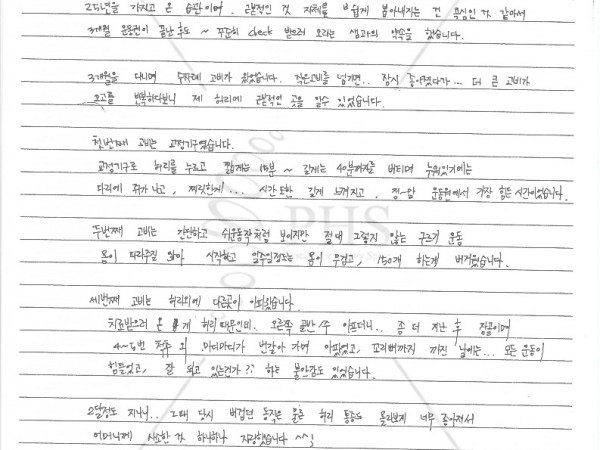 25년을 가지고 온 습관이며, 근본적인 것 자체를 쉽게 뽑아내지는 건 욕심인 것 같아서
3개월 운동권이 끝난 후도 ~ 꾸준히 check 받으러 오라는 샘과의 약속을 했습니다.
3개월을 다니며 수차례 고비가 찾았습니다. 작은고비를 넘기면.. 잠시 좋아졌다가... 더 큰 고비가
오고를 반복하다보니 제 허리에 근본적인 곳을 알수 있었습니다.
첫번째 고비는 교정기구였습니다.
교정기구로 허리를 누르고 짧게는 10분 ~ 길게는 40분까지를 버티며 누워있기에는
다리에 쥐가 나고, 찌릿한게... 시간 또한 길게 느껴지고. 정~말 운동원에서 가장 힘든 시간이었습니다.
두번째 고비는 간단하고 쉬운동작처럼 보이지만 절대 그렇지 않는 구르기 운동
몸이 따라주질 않아 시작하고 일주일정도는 몸이 무겁고, 150개 하는게 버거웠습니다.
세번째 고비는 허리외에 다른곳이 아파왔습니다.
치료받으러 온 게 허리 때문인데.. 오른쪽 골반 1주 아프더니.. 좀 더 지난 후 장골이며
4~5번 척추 의 마디마디가 번갈아 가며 아팠었고, 꼬리뼈까지 까진 날에는... 모든 운동이
힘들었고, 잘 되고 있는건가?? 하는 불안감도 있었습니다.
2달정도 지나니.. 그때 당시 버겁던 동작은 물론 허리 통증도 몰라보게 너무 좋아져서
어머니께 사소한 것 하나하나 자랑했습니다 ^^;
PHS